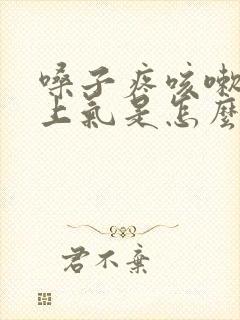 嗓子疼咳嗽
上氣是怎麼
君不棄